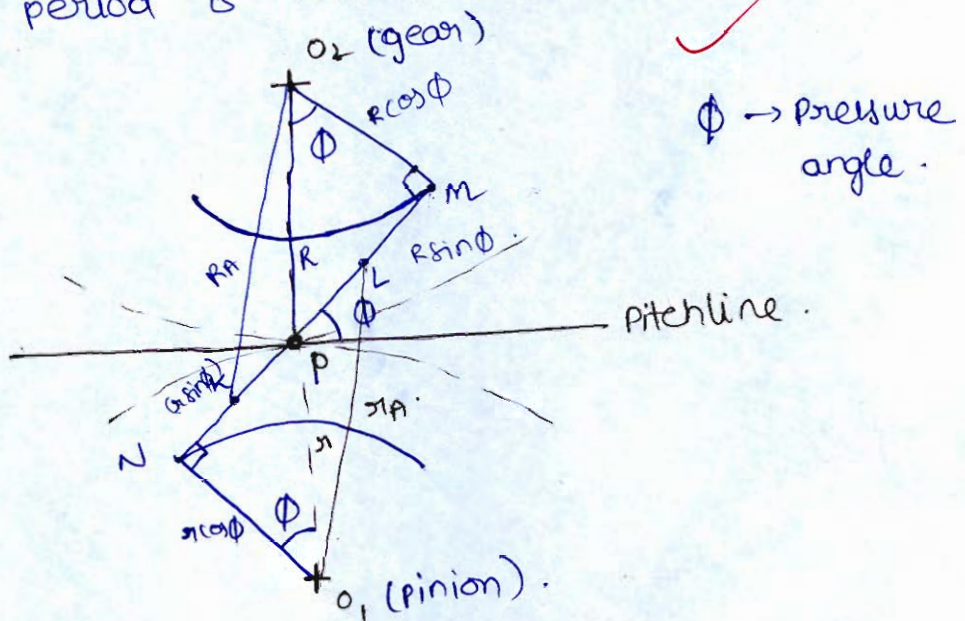 period
O₂ (gear)
Rcosϕ
ϕ → pressure
angle.
ϕ
M
RA
R
L
Rsinϕ.
ϕ
Pitchline.
P
rsinϕ
K
rA.
r
N
rcosϕ
ϕ
O₁ (pinion).